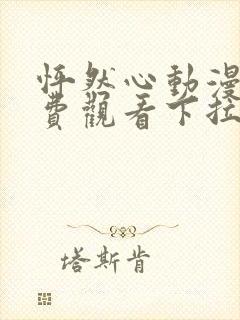 怦然心動漫
費觀看下拉
塔斯肯